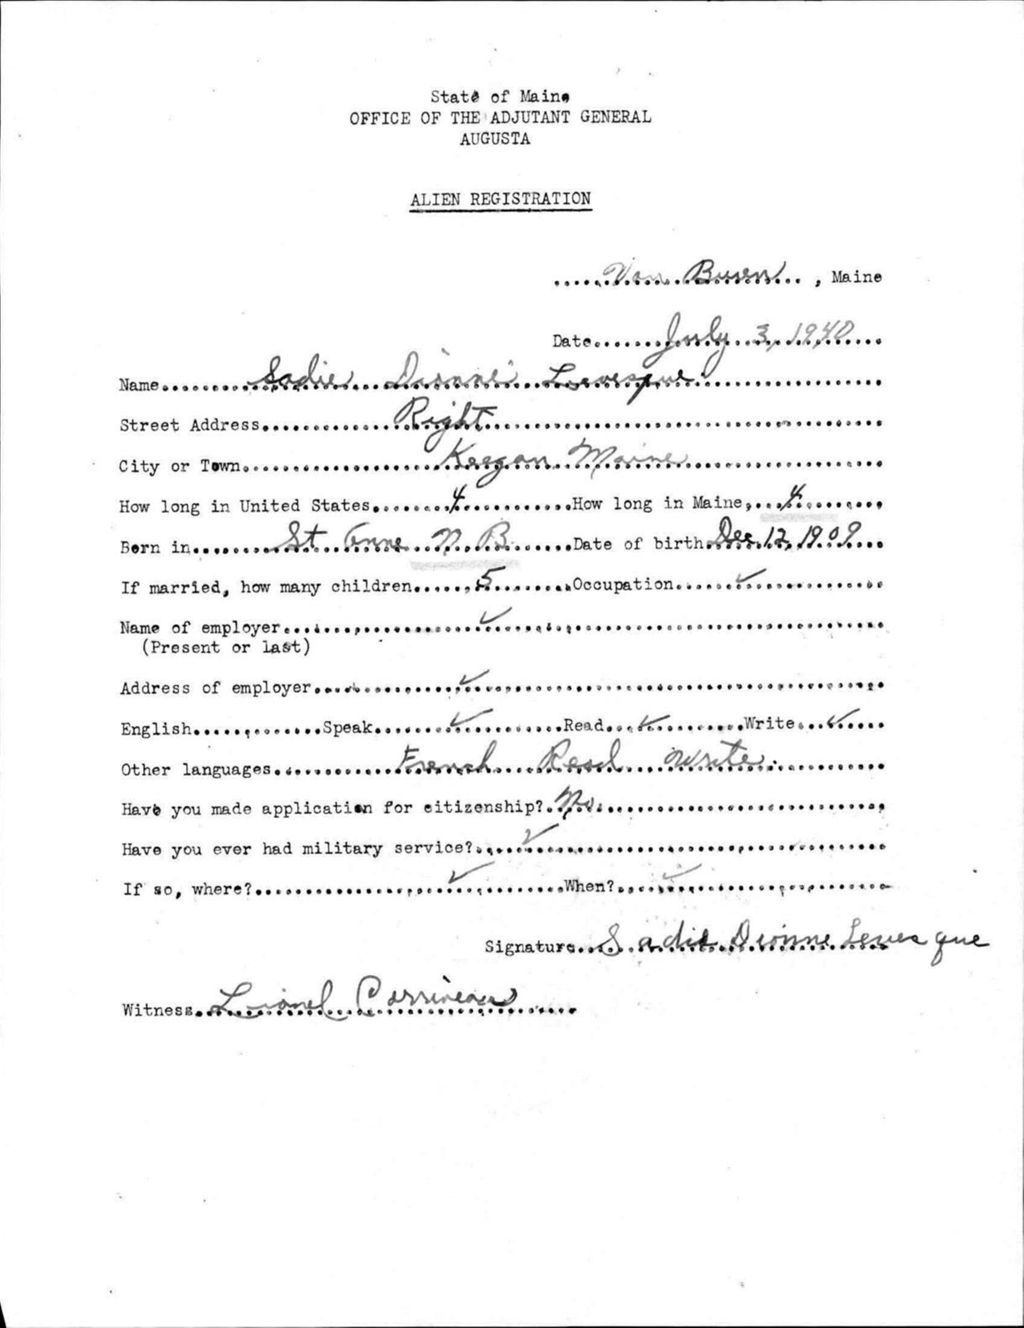 State of Maine
OFFICE OF THE ADJUTANT GENERAL
AUGUSTA
ALIEN REGISTRATION
Van Buren, Maine
Date July 3, 1940
Name Sadie Dionne Levesque
Street Address Right
City or Town Keegan Maine
How long in United States 4 How long in Maine, 4
Born in St Anne N. B. Date of birth Dec 12, 1909
If married, how many children 5 Occupation ✓
Name of employer ✓
(Present or last)
Address of employer ✓
English Speak ✓ Read ✓ Write ✓
Other languages French Read Write
Have you made application for citizenship? No
Have you ever had military service? ✓
If so, where? ✓ When? ✓
Signature Sadie Dionne Levesque
Witness Lionel